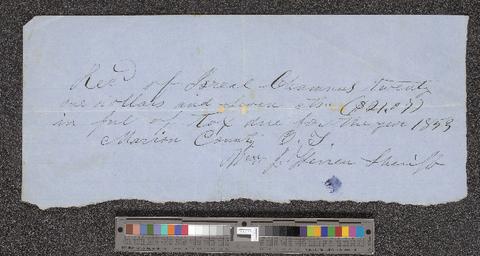 Rec'd of Isreal Chamnes twenty
one dollars and seven cts ($21.07)
in ful of tax due for the year 1853
Marion County O. T.
Wm. J. Herren Sheriff